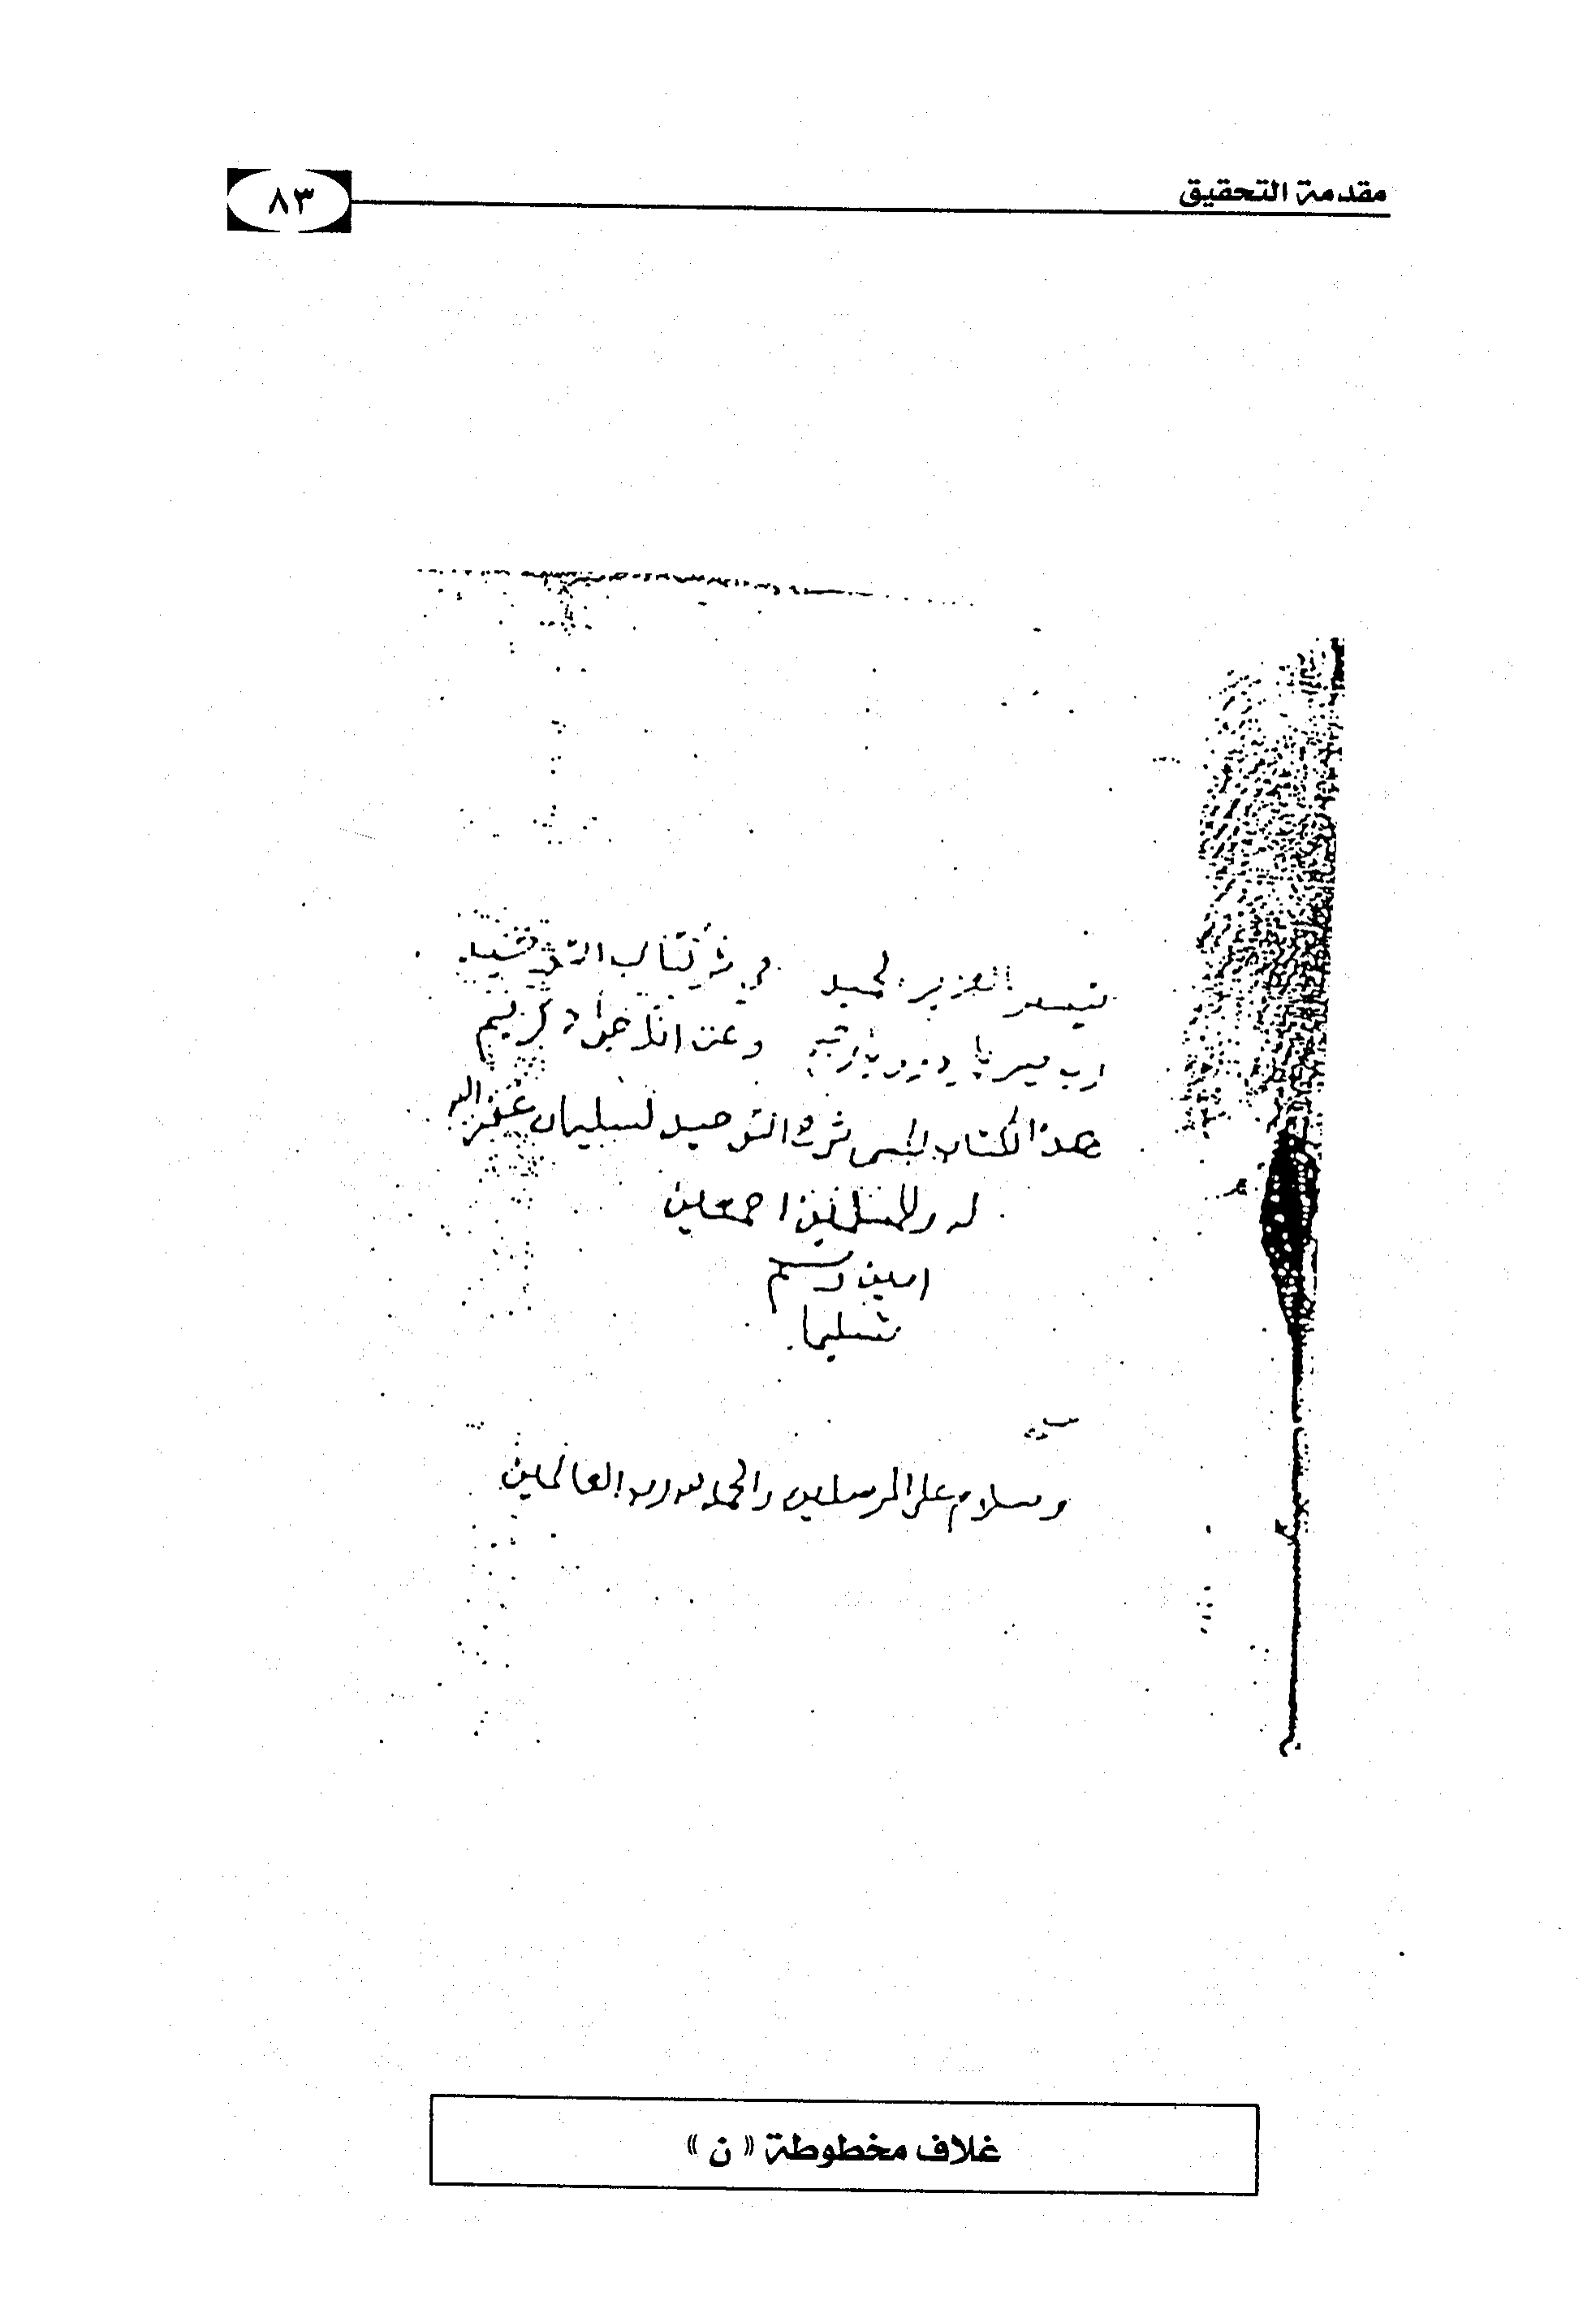 مقدمة التحقيق
٨٣
تيسير العزيز الحميد في شرح كتاب التوحيد
رب يسر يا كريم
هذا الكتاب المسمى شرح التوحيد لسليمان غفر الله
له وللمسلمين اجمعين
امين وسلم
تسليما
وسلام على المرسلين والحمد لله رب العالمين
غلاف مخطوطة « ن »